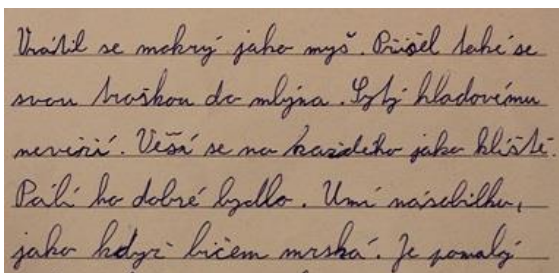 Vrátil se mokrý jako myš. Přišel také se
svou troškou do mlýna. Sytý hladovému
nevěří. Věší se na každého jako klíště.
Pálí ho dobré bydlo. Umí násobilku,
jako když bičem mrská. Je pomalý